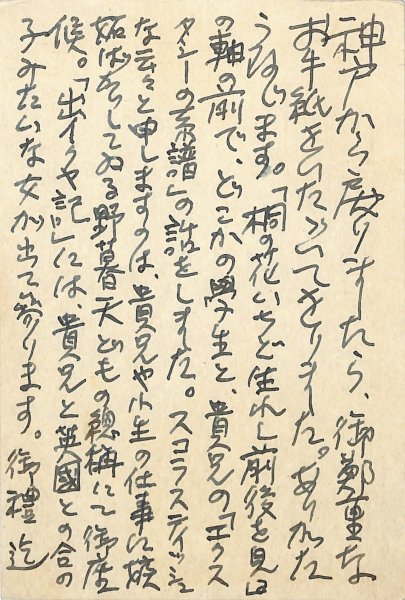 神戸から戻りましたら、御鄭重な
お手紙をいただいてをりました。ありがた
うなじます。「桐の花いちど生れし前後を見ば
の軸の前で、どこかの學生と、貴兄の「エクス
タシーの系譜」の話をしました。スコラスティッシュ
な云々と申しますのは、貴兄や小生の仕事に嫉
妬ばかりしてゐる野暮天どもの總稱にて御座
候。「出イクヤ記」には、貴兄と英國との合の
子みたいな女が出て參ります。御禮迄